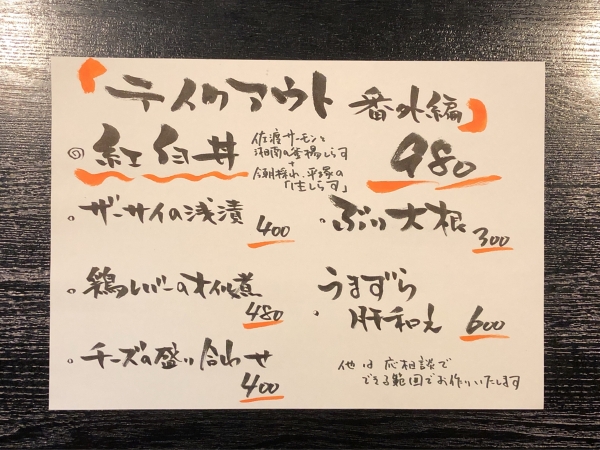 「テイクアウト 番外編」
◎紅白丼
佐渡サーモンと
湘南の釜揚しらす
+
今朝採れ、平塚の
「生しらす」
980
・ザーサイの浅漬 400
・ぶり大根 300
・鶏レバーのオイル煮 480
・うまずら
肝和え 600
・チーズの盛り合わせ 400
他は応相談で
できる範囲でお作りいたします